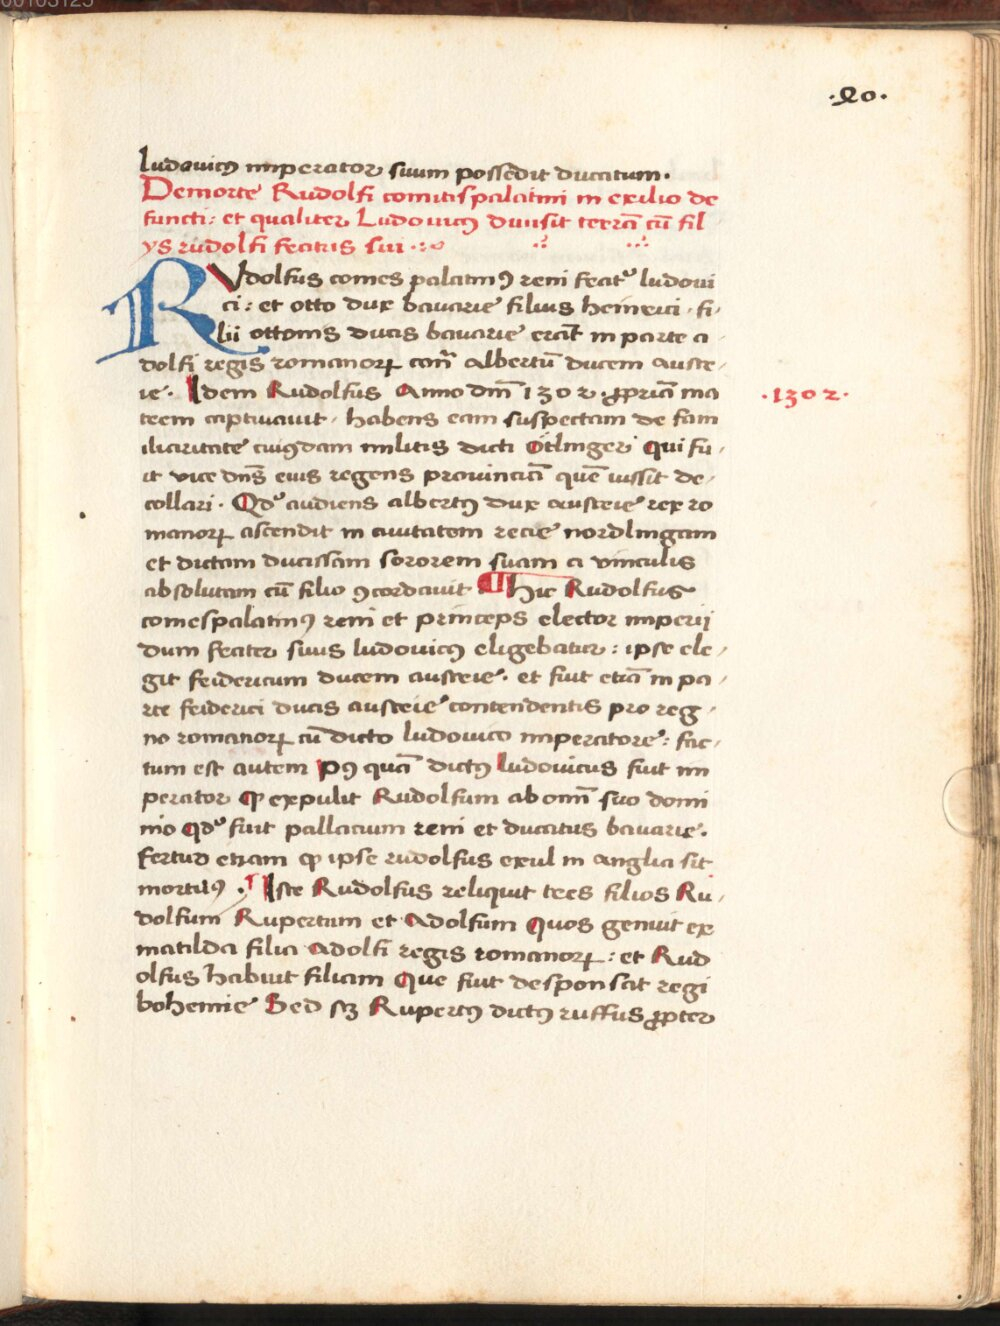 00103125
·20·
ludouicꝰ imperator suum possedit ducatum·
Demorte Rudolfi comitispalatini in exilio de
functi: et qualiter Ludouicus diuisit terrā cū fil
ys rudolfi fratris sui
RVdolfus comes palatinꝰ reni fratᵉʳ ludoui
ci: et otto dux bauarie filius heinrici· fi
lii ottonis ducis bauarie erāt in parte a
dolfi regis romanoꝝ cont̄ albertū ducem austr
ie· Idem Rudolfus Anno dn̄i 1302 ꝓpriā ma
trem captiuauit· habens eam suspectam de fam
iliaritate cuiꝰdam militis dicti Otlinger Qui fu
it vice dn̄s eius regens prouinciā quē iussit de
collari· Qd' audiens albertꝰ dux austrie rex ro
manoꝝ ascendit in ciuitatem recie nordlingam
et dictam ducissam sororem suam a vinculis
absolutam cū filio ꝯcordauit ¶ hic Rudolfus
comespalatinꝰ reni et princeps elector imperii
dum frater suus ludouicꝰ eligebatur: ipse ele
git fridericum ducem austrie· et fuit etiā in pa
rte friderici ducis austrie contendentis pro reg
no romanoꝝ cū dicto ludouico imperatore: fac
tum est autem Pꝰ quā dictꝰ ludouicus fuit im
perator ꝙ expulit Rudolfum ab omī suo domi
nio qd' fuit pallacium reni et ducatus bauarie·
fertur etiam ꝙ ipse rudolfus exul in anglia sit
mortuꝰ· ¶ Iste Rudolfus reliquit tres filios Ru
dolfum Rupertum et Adolfum Quos genuit ex
matilda filia Adolfi regis romanoꝝ: et Rud
olfus habuit filiam Que fuit desponsat regi
bohemie Sed sꝫ Rupertꝰ dictꝰ ruffus ꝓpter
·1302·